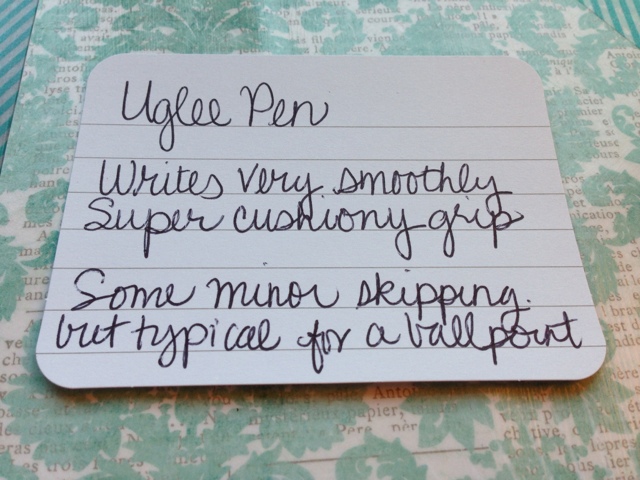 Uglee Pen
Writes very smoothly
Super cushiony grip
Some minor skipping.
but typical for a ballpoint